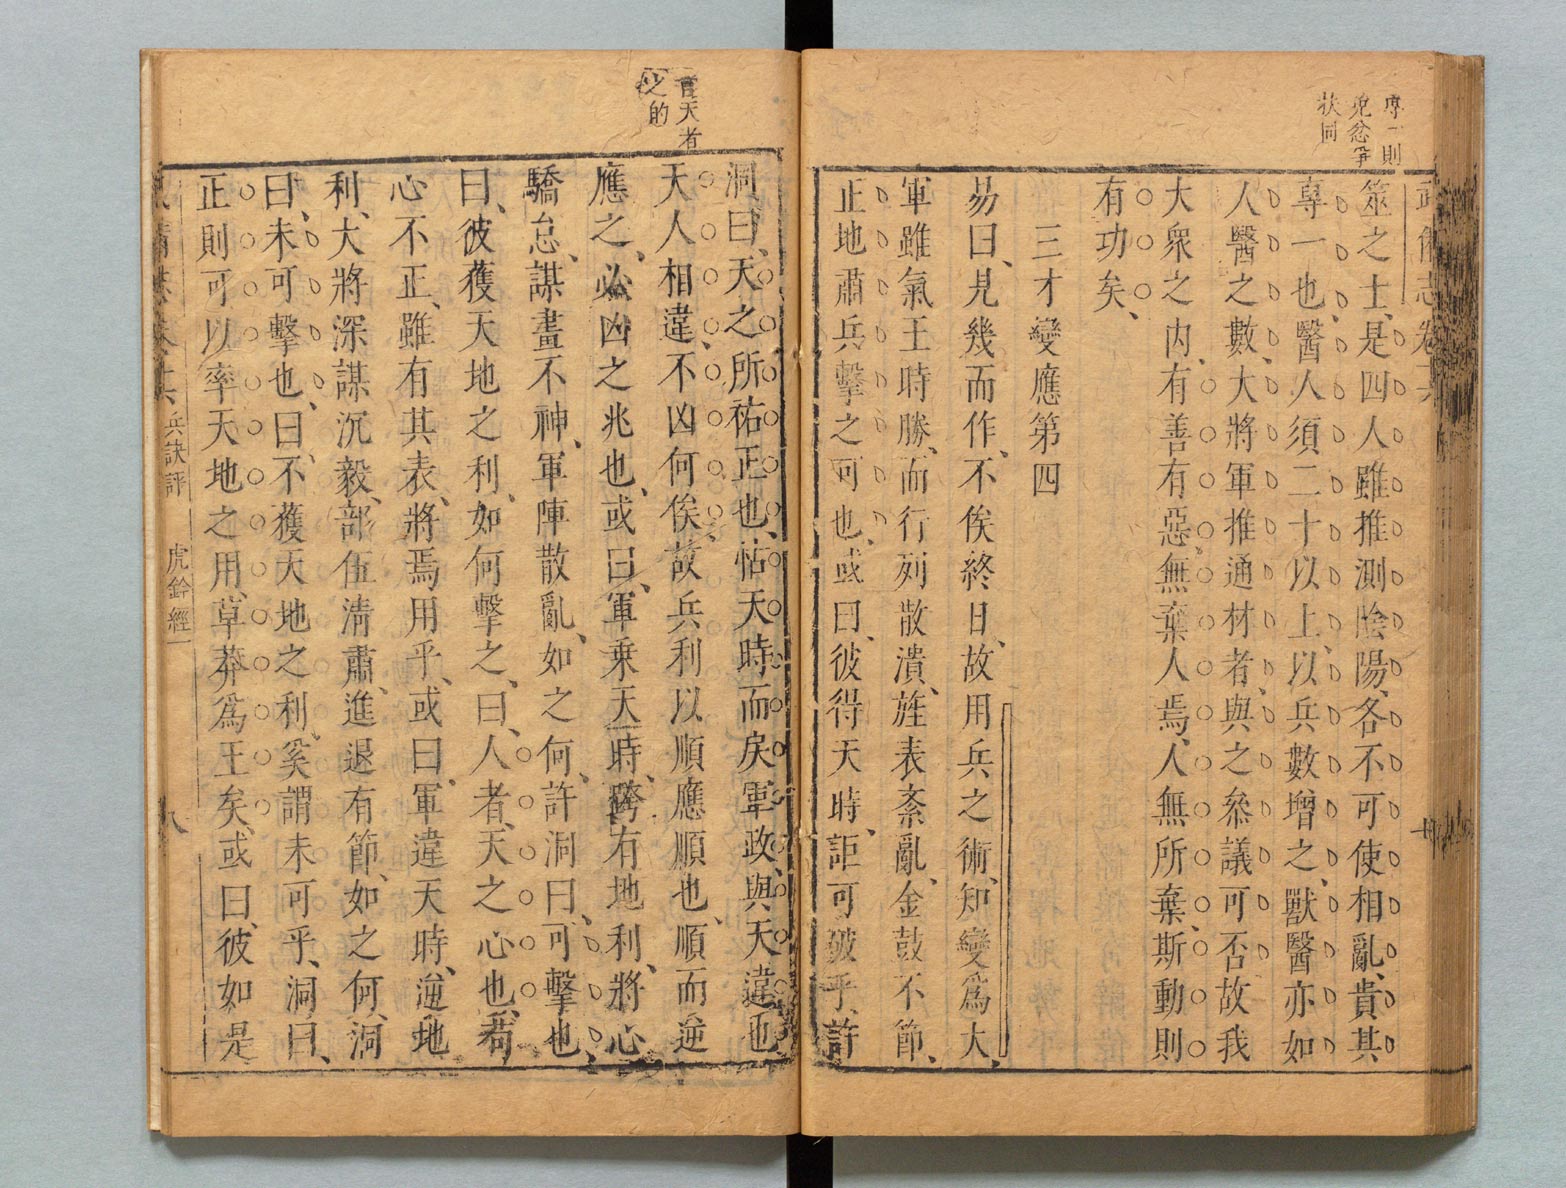 專一則
免忿爭
狀同
武備志 卷六
筮之士、是四人雖推測陰陽、各不可使相亂、貴其
專一也、醫人須二十以上、以兵數增之、獸醫亦如
人醫之數、大將軍推通材者、與之叅議可否、故我
大衆之内、有善有惡、無棄人焉、人無所棄、斯動則
有功矣、
三才變應第四
易曰、見幾而作、不俟終日、故用兵之術、知變爲大、
軍雖氣王時勝、而行列散潰、旌表紊亂、金鼓不節、
正地肅兵擊之可也、或曰、彼得天時、詎可破乎、許
言天者
之的
洞曰、天之所祐正也、怙天時而戾軍政、與天違也、
天人相違、不凶何俟、故兵利以順應順也、順而逆
應之、必凶之兆也、或曰、軍乗天時、跨有地利、將心
驕怠、謀畫不神、軍陣散亂、如之何、許洞曰、可擊也、
曰、彼獲天地之利、如何擊之、曰、人者、天之心也、苟
心不正、雖有其表、將焉用乎、或曰、軍違天時、逆地
利、大將深謀沉毅、部伍淸肅、進退有節、如之何、洞
曰、未可擊也、曰、不獲天地之利、奚謂未可乎、洞曰、
正則可以率天地之用、草莽爲王矣、或曰、彼如是
兵訣評 虎鈐經一 八